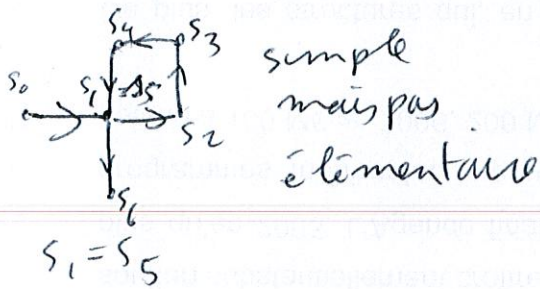 S4 S3
S0 S1 = S5 S2
S6
S1 = S5
simple
mais pas
élémentaire